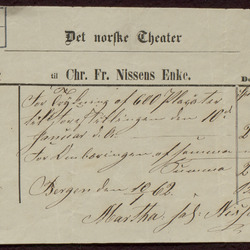 Det norske Theater
til Chr. Fr. Nissens Enke.
For Trykning af 600 Plagater
til Forestillingen den 10de
Januar d. A.
For Ombæringen af samme
Summa
Bergen den 19 62.
Martha sal: Niss